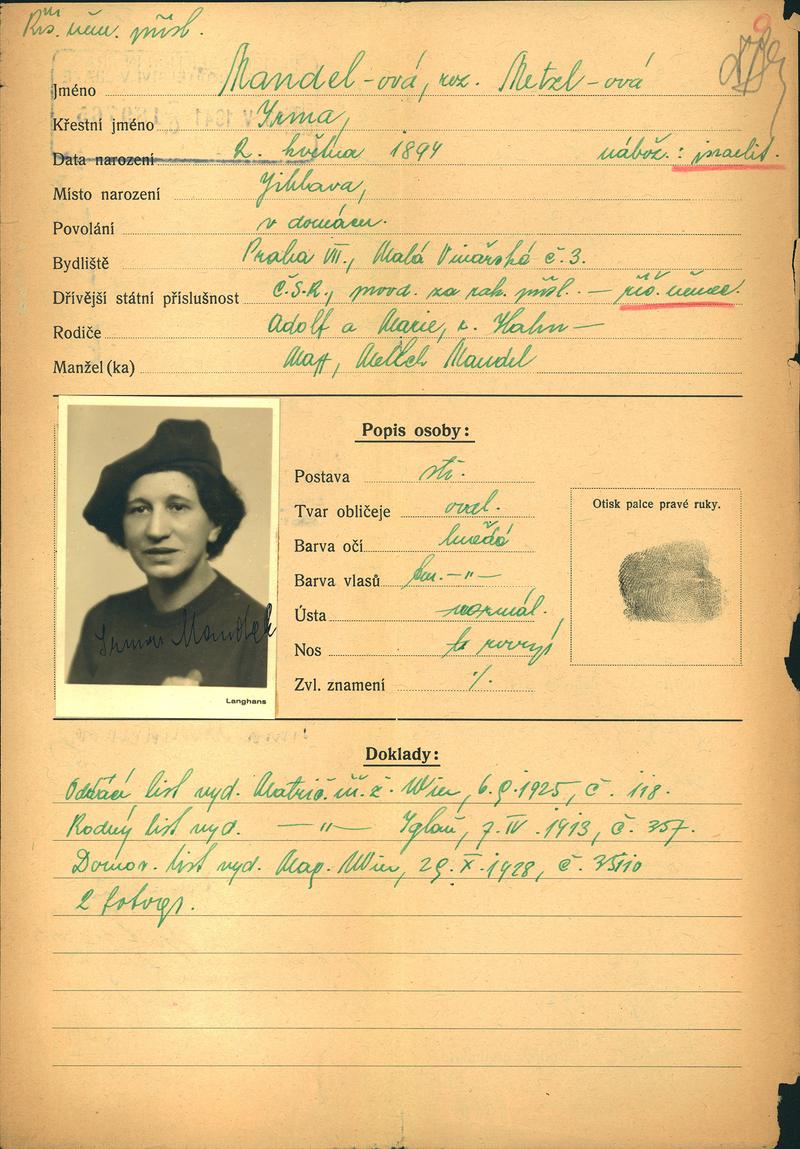 Jméno Mandel-ová, roz. Metzl-ová
Křestní jméno Irma,
Data narození 2. května 1894 nábož.: israelit.
Místo narození Jihlava,
Povolání v domácn.
Bydliště Praha VII., Malá Vinařská č. 3.
Dřívější státní příslušnost Č.S.R., za rak. přísl. — říš. němec.
Rodiče Adolf a Marie, r. Hahn —
Manžel (ka) Mandel
Popis osoby:
Postava stř.
Tvar obličeje oval.
Otisk palce pravé ruky.
Barva očí hnědá
Barva vlasů —"—
Ústa normál.
Nos
Zvl. znamení %
Irma Mandel
Langhans
Doklady:
Oddací list vyd. Matrič. ú. ž. Wien, 6.9.1925, č. 118.
Rodný list vyd. —"— Iglau, 7. IV. 1913, č. 357.
Domov. list vyd. Mag. Wien, 29. X. 1928, č.
2 fotogr.